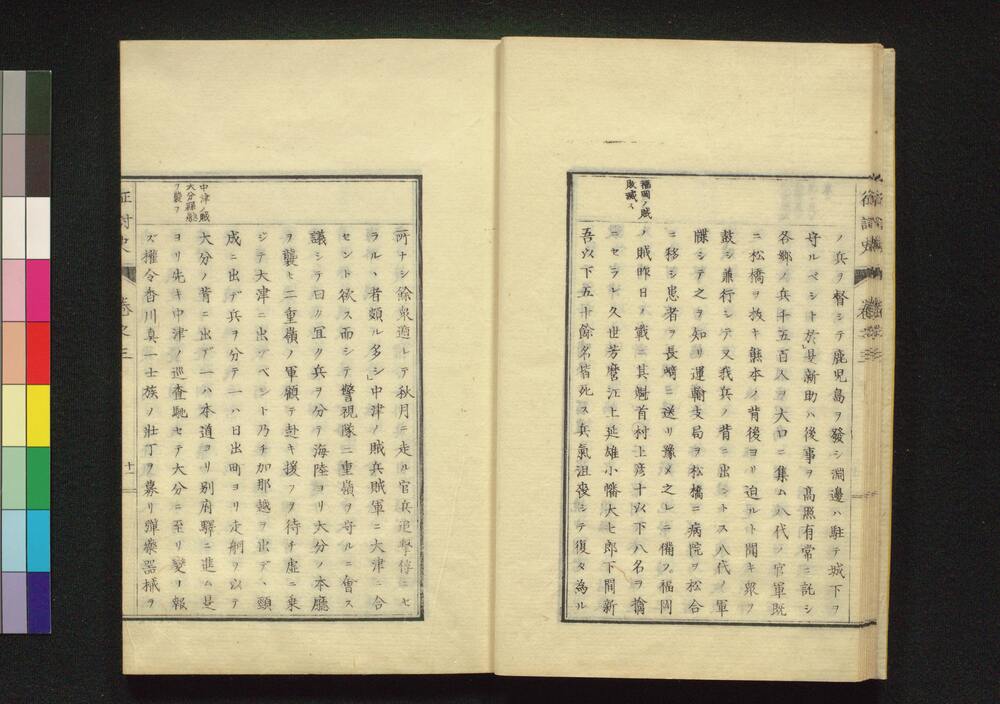 福岡ノ賊
敗滅ス
ノ兵ヲ督シテ鹿児島ヲ發シ淵邊ハ駐テ城下ヲ
守ルベシト於是新助ハ後事ヲ高照有常ニ託シ
各郷ノ兵千五百人ヲ大口ニ集ム八代ノ官軍既
ニ松橋ヲ抜キ熊本ノ背後ヨリ迫ルト聞キ衆ヲ
鼓シ兼行シテ又我兵ノ背ニ出ントス八代ノ軍
牒シテ之ヲ知リ運輸支局ヲ松橋ニ病院ヲ松合
ニ移シ患者ヲ長崎ニ送リ豫メ之レニ備フ福岡
ノ賊昨日ノ戰ニ其魁首村上彦十以下八名ヲ擒
ニセラレ久世芳麿江上延雄小幡大七郎下間新
吾以下五十餘名皆死ス兵氣沮喪シテ復タ為ル
中津ノ賊
大分縣廳
ヲ襲フ
所ナシ餘衆遁レテ秋月ニ走ル官兵追撃俘ニセ
ラルヽ者頗ル多シ中津ノ賊兵賊軍ニ大津ニ合
セント欲ス而シテ警視隊二重嶺ヲ守ルニ會ス
議シテ曰ク宜ク兵ヲ分テ海陸ヨリ大分ノ本廳
ヲ襲ヒ二重嶺ノ軍顧テ赴キ援フヲ待チ虚ニ乗
ジテ大津ニ出ヅベシト乃チ加那越ヲ出デヽ頸
成ニ出デ兵ヲ分テ一ハ日出町ヨリ走舸ヲ以テ
大分ノ背ニ出デ一ハ本道ヨリ別府驛ニ進ム是
ヨリ先キ中津ノ巡査馳セテ大分ニ至リ變ヲ報
ズ權令香川眞一士族ノ壮丁ヲ募リ彈藥器械ヲ
征討史
卷之三
十一